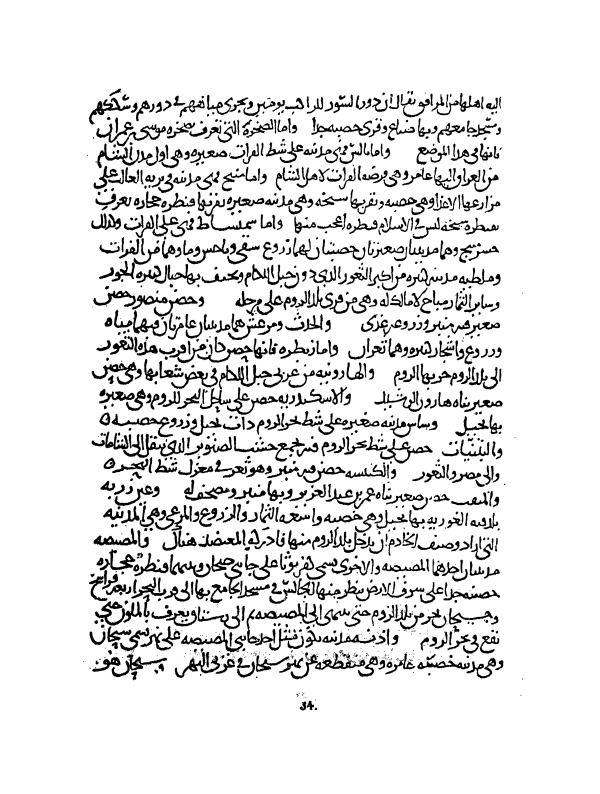 اليه اهلها من المرافق يقال ان دور السور للراكب يومين ويجرى مياههم فى دورهم وسككهم
ومسجد جامعهم وبها ضياع وقرى خصبه جدا واما الصخره التى تعرف بصخره موسى بن عمران
فانها فى هذا الموضع واما بالس فهى مدينه على شط الفرات صغيره وهى اول مدن الشام
من العراق واليها عامر وهى فرضه الفرات لاهل الشام واما منبج فهى مدينه فى بريه الغالب على
مزارعها الاعذا وهى خصبه وبقربها سنجه وهى مدينه صغيره بقربها قنطره حجاره تعرف
بقنطره سنجه ليس فى الاسلام قنطره اعجب منها واما سميساط فهى على الفرات وكذلك
جسر منبج وهما مدينتان صغيرتان خصبتان لهما زروع سقى وماوهما من الفرات
وملطيه مدينه كبيره من اكبر الثغور التى دون جبل اللكام ويحتف بها جبال كثيره الجوز
وساير الثمار مباح لا مالك له وهى من قرى بلد الروم على مرحله وحصن منصور حصن
صغير فيه منبر وزروعه عذى والحدث ومرعش هما مدينتان عامرتان فيهما مياه
وزروع واشجار كثيره وهما ثغران واما زبطره فانها حصن كان من اقرب هذه الثغور
الى بلد الروم خربها الروم والهارونيه من غربى جبل اللكام فى بعض شعابها وهى حصن
صغير بناه هارون الرشيد والاسكندريه حصن على ساحل البحر للروم وهى صغيره
بها نخيل وبياس مدينه صغيره على شط بحر الروم ذات نخيل وزروع خصبه
والتينات حصن على شط بحر الروم فيه يجمع خشب الصنوبر الذى ينقل الى الشامات
والى مصر والثغور والكنيسه حصن فيه منبر وهو ثغر فى معزل شط البحر
والمثقب حصن صغير بناه عمر بن عبد العزيز وبها منبر ومصحف له وعين زربه
بلد يشبه الغور به بها نخيل وهى خصبه واسعه الثمار والزروع والمرعى وهى المدينه
التى اراد وصيف الخادم ان يدخل بلد الروم منها فادركه المعتضد هناك والمصيصه
مدينتان احدهما المصيصه والاخرى تسمى كفربيا على جانبى جيحان وبينهما قنطره حجاره
حصينه جدا على شرف الارض ينظر منها الجالس فى مسجد الجامع بها الى قرب البحر اربعه فراسخ
وجيحان يخرج من بلد الروم حتى ينتهى الى المصيصه ثم الى رستاق يعرف بالملون حتى
يقع فى بحر الروم واذنه مدينه تكون مثل احد جانبى المصيصه على نهر يسمى سيحان
وهى مدينه خصبه عامره وهى منقطعه عن نهر سيحان فى غربى النهر وسيحان هو
34.